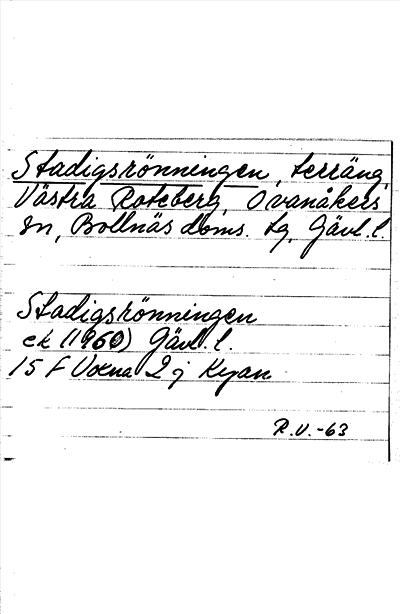 Stadigsrönningen, terräng,
Västra Roteberg, Ovanåkers
sn, Bollnäs doms. tg, Gävl. l.
Stadigsrönningen
ek (1960) Gävl. l.
15 F Voxna 2 j Kyan
R.V.-63